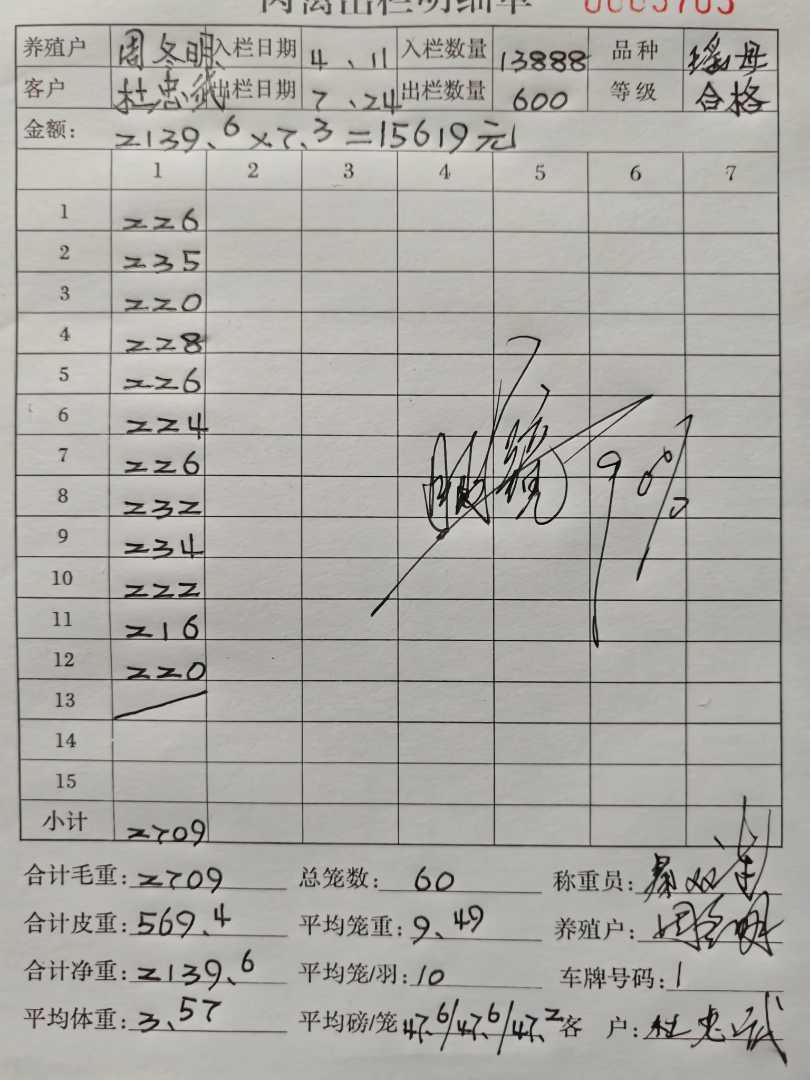 肉禽出栏明细单 0005705
养殖户 周冬明 入栏日期 4、11 入栏数量 13888 品种 瑶母
客户 杜忠武 出栏日期 7、24 出栏数量 600 等级 合格
金额: 2139、6×7、3=15619元
1 2 3 4 5 6 7
1 226
2 235
3 220
4 228
5 226
6 224
7 226
8 232
9 234
10 222
11 216
12 220
13
14
15
90%
小计 2709
合计毛重: 2709 总笼数: 60 称重员:
合计皮重: 569、4 平均笼重: 9、49 养殖户: 周冬明
合计净重: 2139、6 平均笼/羽: 10 车牌号码: 1
平均体重: 3、57 平均磅/笼 47、6/47、6/47、2 客 户: 杜忠武